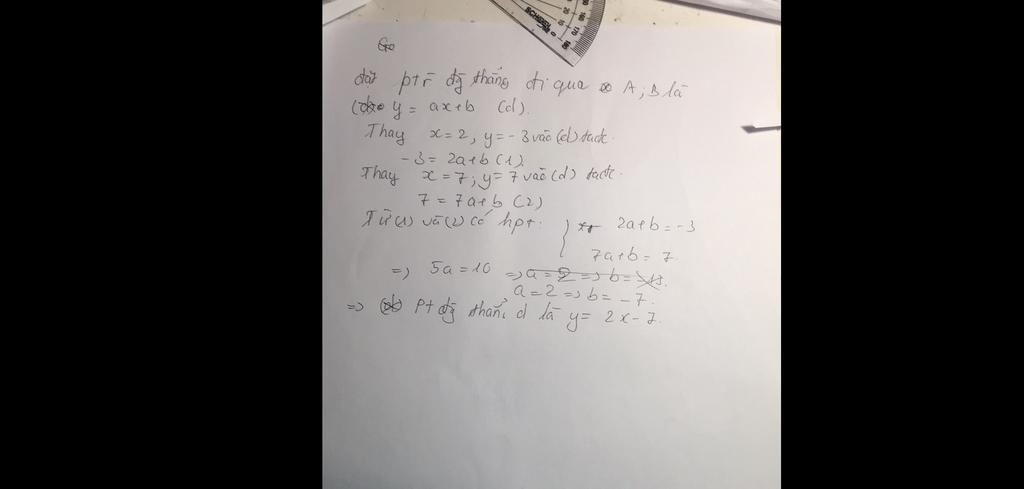 đặt ptr đg thẳng đi qua A; B là
y = ax+b (d).
Thay x=2, y=-3 vào (d) tađc.
-3 = 2a+b (1).
Thay x=7; y=7 vào (d) tađc.
7 = 7a+b (2)
Từ (1) và (2) có hpt: 2a+b=-3
7a+b=7
=> 5a=10 => a=2 => b=
a=2 => b=-7.
=> pt đg thẳng d là y= 2x-7.